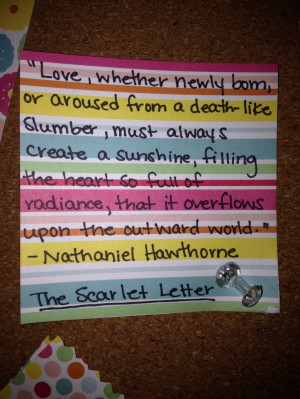 "Love, whether newly born,
or aroused from a death-like
slumber, must always
create a sunshine, filling
the heart so full of
radiance, that it overflows
upon the outward world."
- Nathaniel Hawthorne
The Scarlet Letter